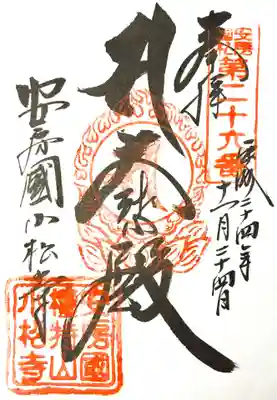 第二十六番
奉拝
平成二十四年
十一月二十四日
大悲殿
安房國小松寺
安房國
檀特山
小松寺